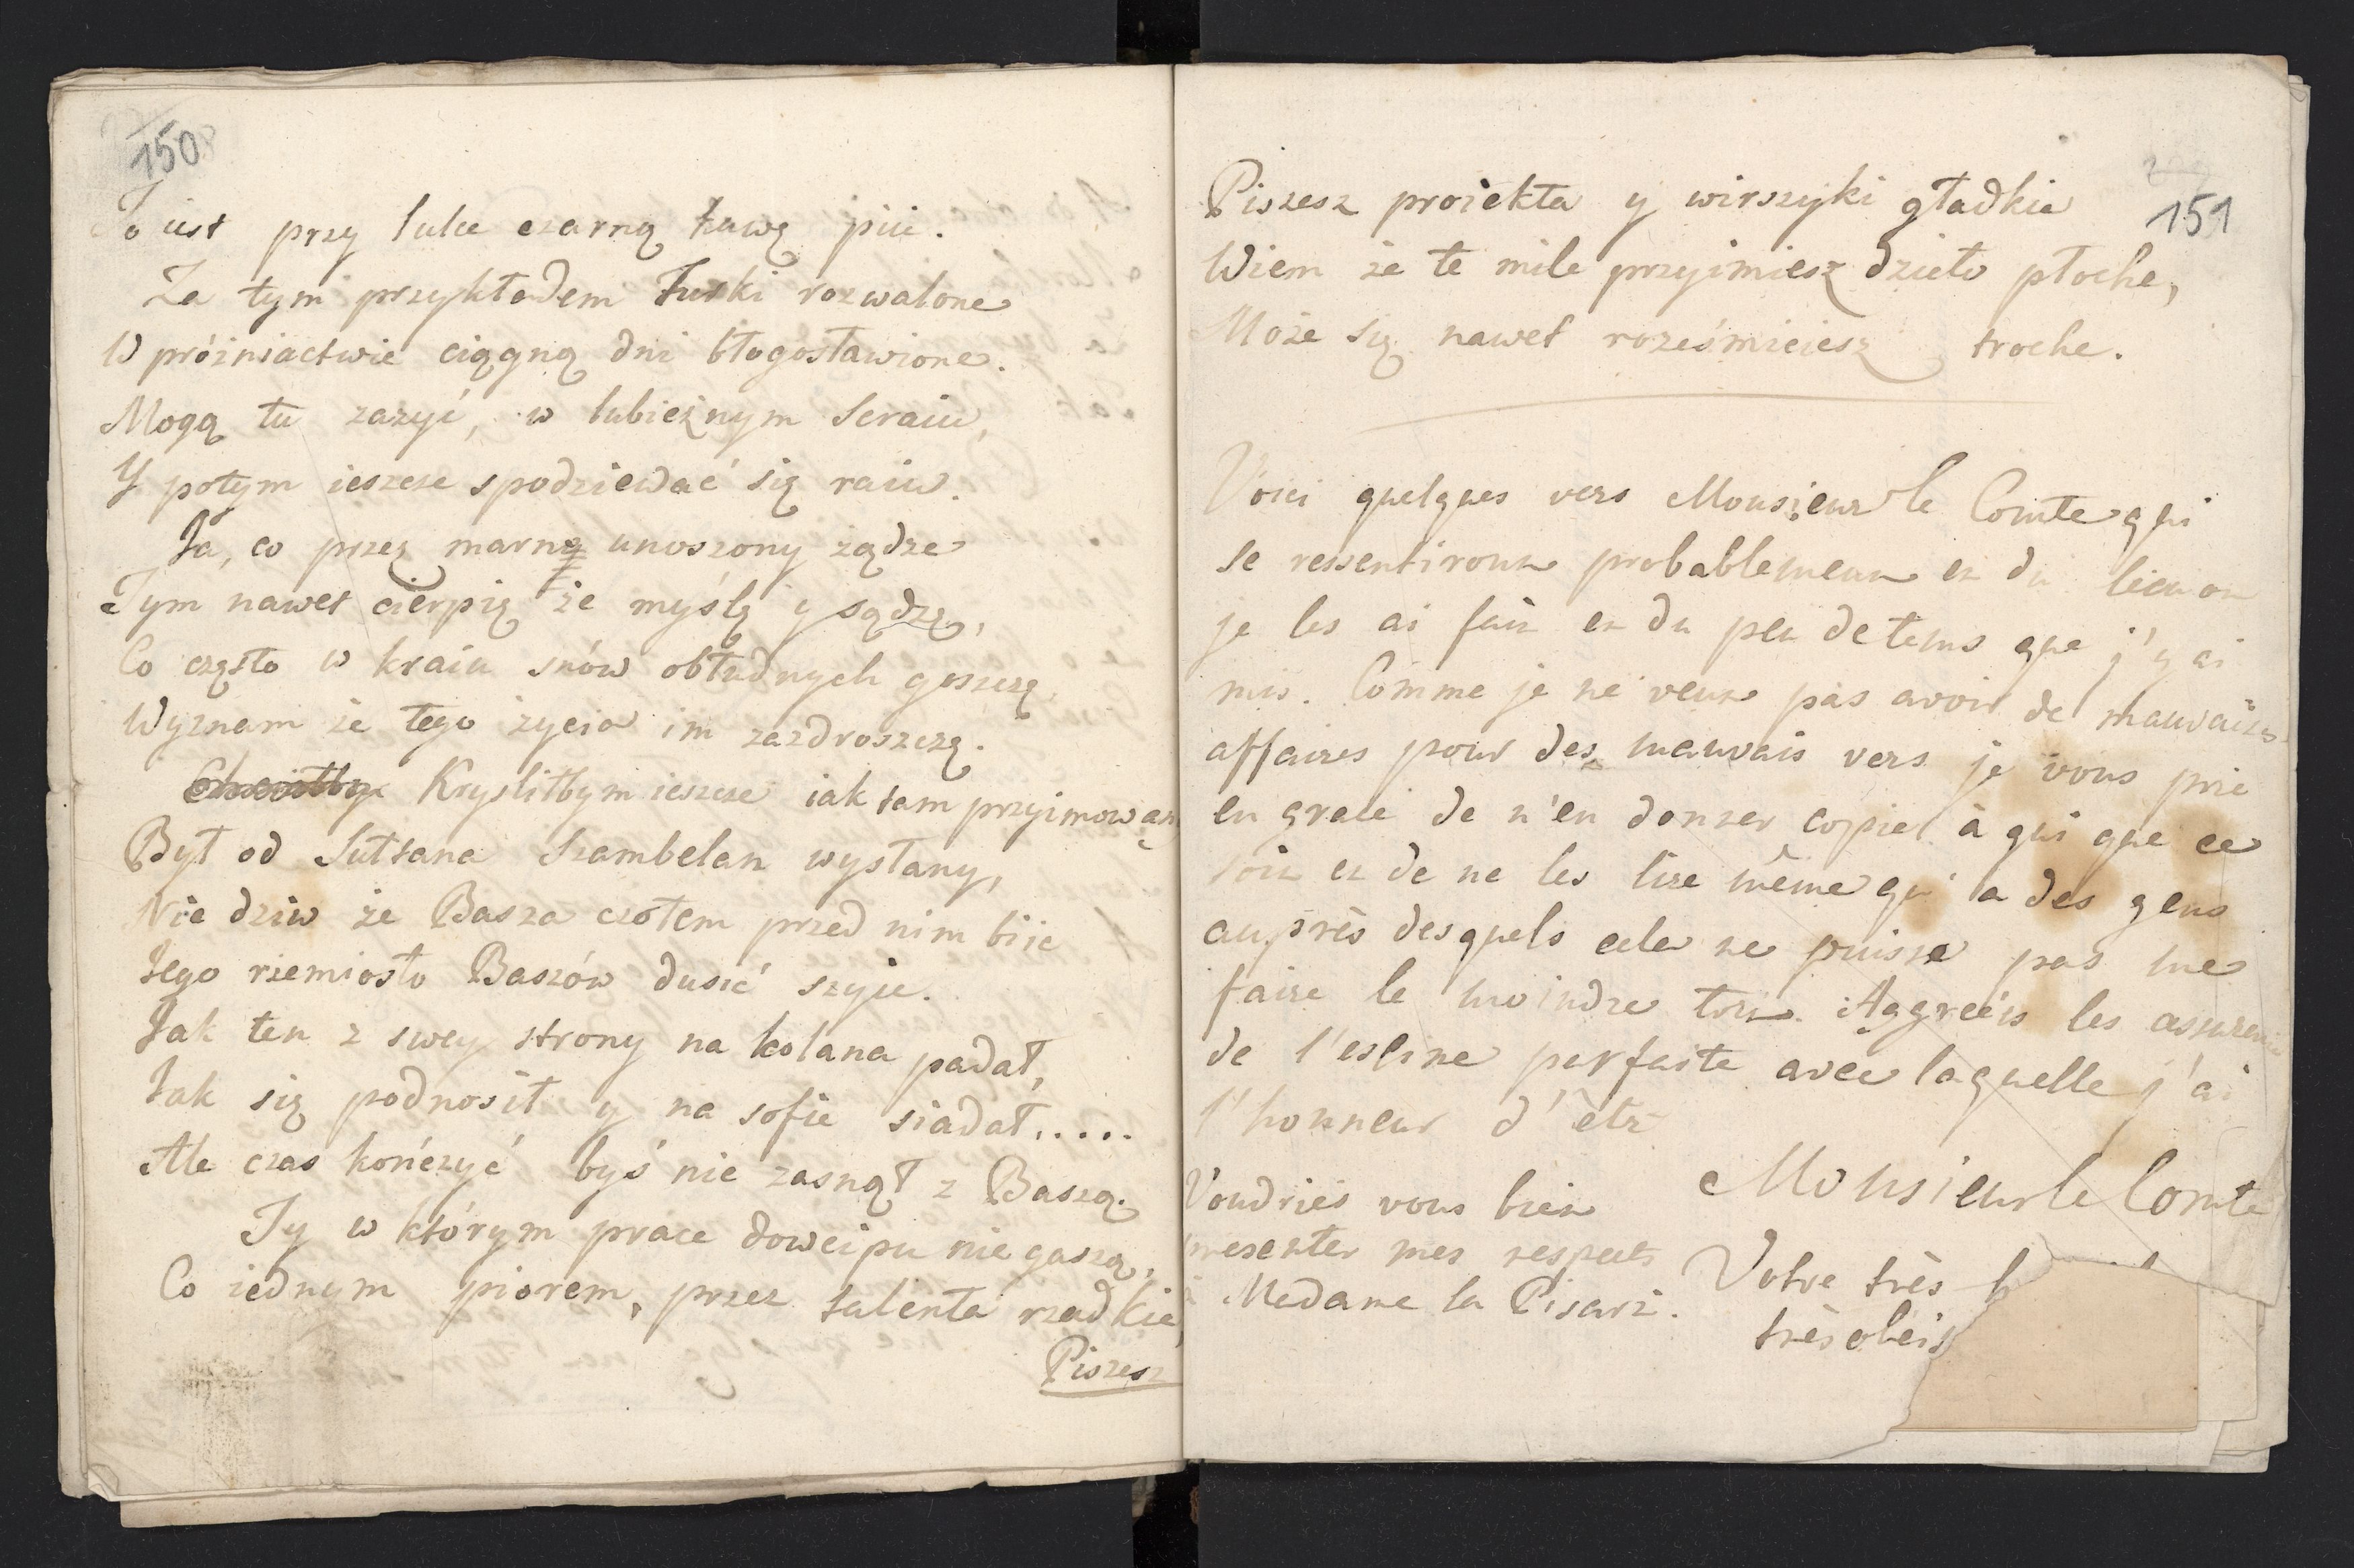 150
To iest przy lulce czarną kawę piie.
Za tym przykładem Turki rozwalone
W próżniactwie ciągną dni błogosławione.
Mogą tu zażyć, w lubieżnym Seraiu,
Y potym ieszcze spodziewać się raiu.
Ja, co przez marną unoszony żądze
Tym nawet cierpię że myślę y sądzę,
Co często w kraiu snów obłudnych goszczę,
Wyznam że tego życia im zazdroszczę.
Kryslitbym ieszcze iak tam przyimowany
Był od Sułtana Szambelan wysłany,
Nie dziw że Basza czołem przed nim biie
Jego rzemiosło Baszów dusić szyie.
Jak ten z swey strony na kolana padał,
Jak się podnosił y na sofie siadał.....
Ale czas kończyć byś nie zasnął z Baszą.
Ty w którym prace dowcipu nie gaszą,
Co iednym piorem, przez talenta rzadkie,
Piszesz
151
Piszesz proiekta y wirszyki gładkie
Wiem że te mile przyimiesz dzieło płoche,
Może się nawet roześmieiesz troche.
Voici quelques vers Monsieur le Comte qui
se ressentiront probablement et du lieu ou
je les ai fait et du peu de tems que j'y ai
mis. Comme je ne veux pas avoir de mauvaises
affaires pour des mauvais vers je vous prie
en grace de n'en donner copie à qui que ce
soit et de ne les lire même qu'a des gens
auprès desquels cela ne puisse pas me
faire le moindre tort. Aggreés les assurences
de l'estime parfaite avec laquelle j'ai
l'honneur d'être
Monsieur le Comte
Votre très
très obéis
Voudriés vous bien
presenter mes respects
à Madame la Pisarz.